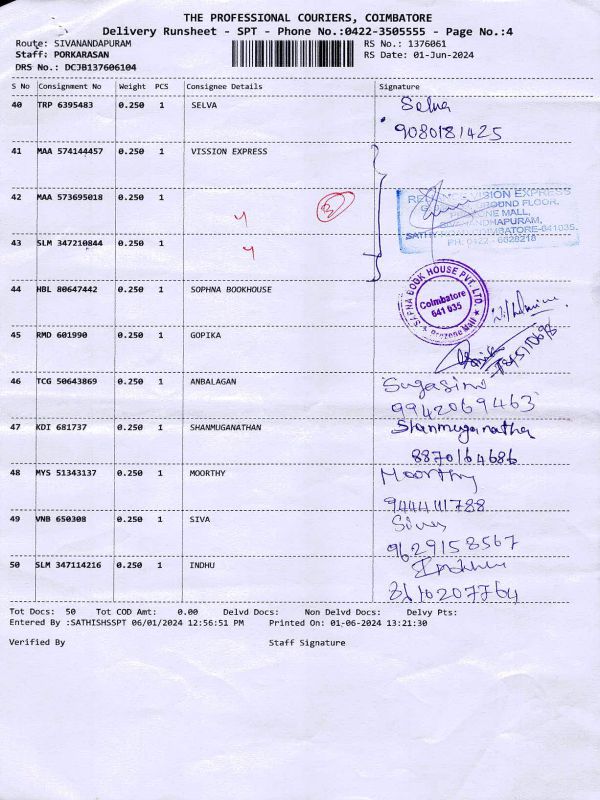 THE PROFESSIONAL COURIERS, COIMBATORE
Delivery Runsheet - SPT - Phone No.:0422-3505555 - Page No.:4
Route: SIVANANDAPURAM
RS No.: 1376061
Staff: PORKARASAN
RS Date: 01-Jun-2024
DRS No.: DCJB137606104
S No Consignment No Weight PCS Consignee Details Signature
40 TRP 6395483 0.250 1 SELVA Selva
9080181425
41 MAA 574144457 0.250 1 VISSION EXPRESS
42 MAA 573695018 0.250 1 4 3
VISION EXPRESS
GROUND FLOOR,
PROZONE MALL,
SIVANANDHAPURAM,
COIMBATORE-641035.
PH: 0422 - 6628218
43 SLM 347210844 0.250 1 4
44 HBL 80647442 0.250 1 SOPHNA BOOKHOUSE
SAPNA BOOK HOUSE PVT. LTD.
Coimbatore
641 035
Prozone Mall
45 RMD 601990 0.250 1 GOPIKA
46 TCG 50643869 0.250 1 ANBALAGAN
9942069463
47 KDI 681737 0.250 1 SHANMUGANATHAN Shanmuganatha
8870164686
48 MYS 51343137 0.250 1 MOORTHY Moorthy
9444111788
49 VNB 650308 0.250 1 SIVA Siva
9629158567
50 SLM 347114216 0.250 1 INDHU Indhu
8110207764
Tot Docs: 50 Tot COD Amt: 0.00 Delvd Docs: Non Delvd Docs: Delvy Pts:
Entered By :SATHISHSSPT 06/01/2024 12:56:51 PM Printed On: 01-06-2024 13:21:30
Verified By Staff Signature